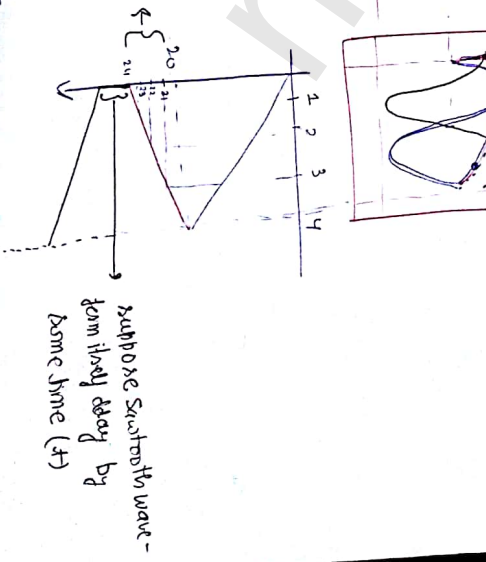 1
2
3
4
20
21
22
23
24
suppose sawtooth wave-
form itself delay by
some time (t)